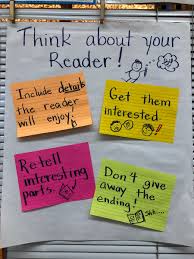 Think about your
Reader!
Include details
the reader
will enjoy!
Get them
interested
Re-tell
interesting
parts.
Don't give
away the
ending!